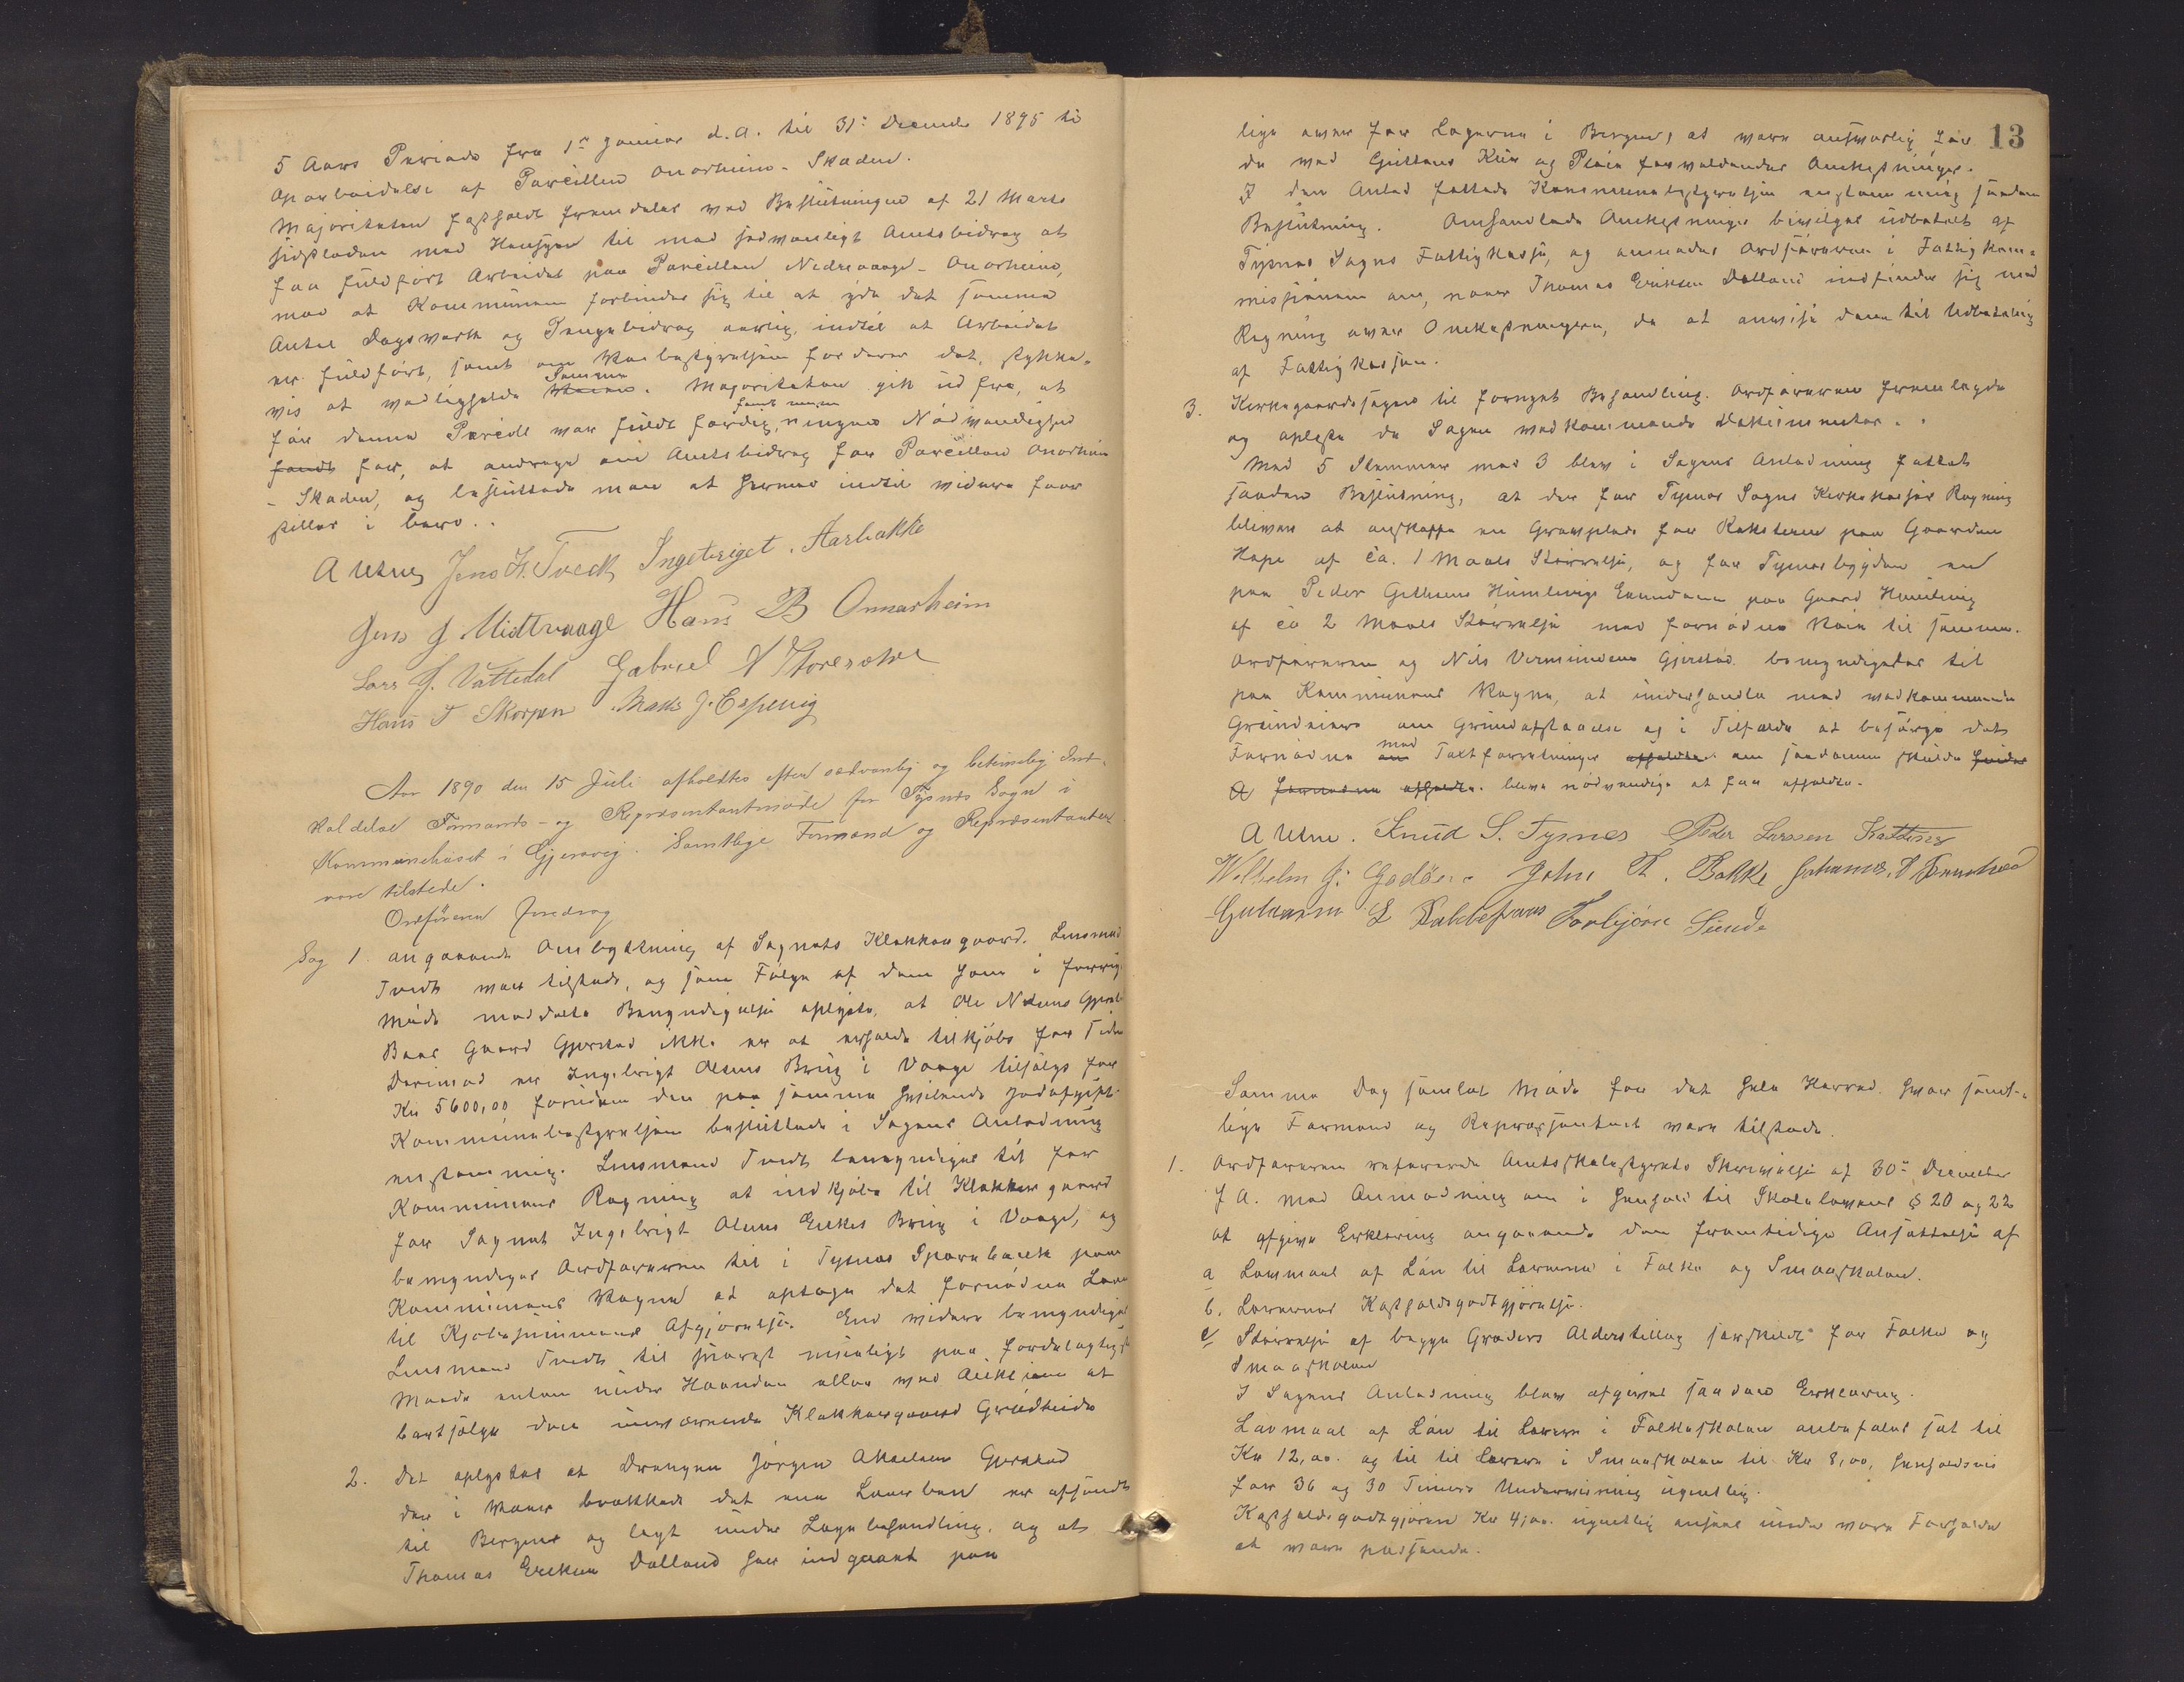 5 Aars Periode fra 1ste Januar d.A. til 31: December 1895 til
Oparbeidelse af Parcillen Onarheim - Skaden.
Majoriteten fastholdt fremdeles ved Beslutningen af 21 Marts
sidstleden med Hensyn til med sedvanligt Amtsbidrag at
faa fuldført Arbeidet paa Parcillen Nedrevaage - Onarheim,
mod at Kommunen forbinder sig til at yde det samme
Antal Dagsverk og Pengebidrag aarlig, indtil at Arbeidet
er fuldført, samt om Veibestyrelsen fordrer det, stykke-
vis at vedligeholde Samme. Majoriteten gik ud fra, at
før denne Parcel var fuldt færdig, fandt man ingen Nødvendighed
for, at andrage om Amtsbidrag for Parcillen Onarheim
- Skaden, og besluttede man at hermed indtil videre faar
stilles i bero.
A Utne Jens H. Tvedt Ingebrigt Aarbakke
Jens J Midtvaage Hans B Onnarheim
Lars G. Vattedal Gabriel A Storesætre
Hans T Skorpen Mats J. Espevig
Aar 1890 den 15 Juli afholdtes efter sædvanlig og betimelig Ind-
kaldelse Formands- og Repræsentantmøde for Tysnes Sogn i
Kommunehuset i Gjersvig. Samtlige Formænd og Repræsentanter
vare tilstede.
Ordføreren foredrog
Sag 1. angaaende Ombytning af Sognets Klokkergaard. Lensmand
Tvedt var tilstede, og som Følge af den ham i forrige
Møde meddelte Bemyndigelse oplyste, at Ole Nilsens Gjerstad
Brug Gaard Gjerstad ikke er at erholde tilkjøbs for Tiden
Derimod er Ingebrigt Olsens Brug i Vaage tilsalgs for
Kr 5600,00 foruden den paa samme hvilende Jordafgift.
Kommunebestyrelsen besluttede i Sagens Anledning
enstemmig. Lensmand Tvedt bemyndiges til for
Kommunens Regning at indkjøbe til Klokkergaard
for Sognet Ingebrigt Olsens Enkes Brug i Vaage, og
bemyndiges Ordføreren til i Tysnes Sparebank paa
Kommunens Vegne at optage det fornødne Laan
til Kjøbesummens Afgjørelse. End videre bemyndiges
Lensmand Tvedt til snarest muligt paa fordelagtigste
Maade enten under Haanden eller ved Auktion at
bortsælge den nuværende Klokkergaard Gridheide
2. Det oplystes at Drengen Jørgen Gjerstad
der i Vaar brækkede det ene Laarben er afsendt
til Bergen og lagt under Lægebehandling, og at
Thomas Eriksen Dalland har indgaaet paa
13
lige over for Lægerne i Bergen, at være ansvarlig for
de ved Guttens Kur og Pleie forvoldende Omkostninger.
I den Anled fattede Kommunebestyrelsen enstemmig saadan
Beslutning. Omhandlede Omkostninger bevilges udbetalt af
Tysnes Sogns Fattigkasse, og anmodes Ordføreren i Fattigkom-
missionen om, naar Thomas Eriksen Dalland indfinder sig med
Regning over Omkostningerne, da at anvise denne til Udbetaling
af Fattigkassen.
3. Kirkegaardssagen til fornyet Behandling. Ordføreren fremlagde
og oplæste de Sagen vedkommende Dokumenter.
Med 5 Stemmer mod 3 blev i Sagens Anledning fattet
saadan Beslutning, at der for Tysnes Sogns Kirkekasses Regning
bliver at anskaffe en Gravplads for Reksteren paa Gaarden
Hope af ca. 1 Maals Størrelse, og for Tysnesbygden en
paa Peder Guttormsens Humlevigs Eiendom paa Gaard Humlevig
af ca 2 Maals Størrelse med fornøden Vei til samme.
Ordføreren og Nils Vermundsen Gjerstad bemyndigedes til
paa Kommunens Vegne, at underhandle med vedkommende
Grundeiere om Grundafstaaelse og i Tilfælde at besørge det
Fornødne med Taxtforretninger om saadanne skulde
blive nødvendige at faa afholdte.
A Utne. Knud S. Tysnes Peder Larssen Kaldestad
Wilhelm J. Godøen John T. Bakke Johannes P
Guttorm L Torbjørn Sunde
Samme Dag samlet Møde for det hele Herred. hvor samt-
lige Formænd og Repræsentant vare tilstede.
1. Ordføreren refererede Amtsskolestyrets Skrivelse af 30te December
f A. med Anmodning om i Henhold til Skolelovens § 20 og 22
at afgive Erklæring angaaende den fremtidige Ansættelse af
a Lavmaal af Løn til Lærerne i Folke og Smaaskolen.
b. Lærernes Kostholdsgodtgjørelse.
c Størrelse af begge Graders Alderstillæg særskildt for Folke og
Smaaskolen
I Sagens Anledning blev afgivet saadan Erklæring.
Lavmaal af Løn til Lærere i Folkeskolen anbefales sat til
Kr 12,00. og til til Lærere i Smaaskolen til Kr 8,00, henholdsvis
for 36 og 30 Timers Undervisning ugentlig.
Kostholdsgodtgjøren Kr 4,00. ugentlig ansees under vore Forholde
at være passende.